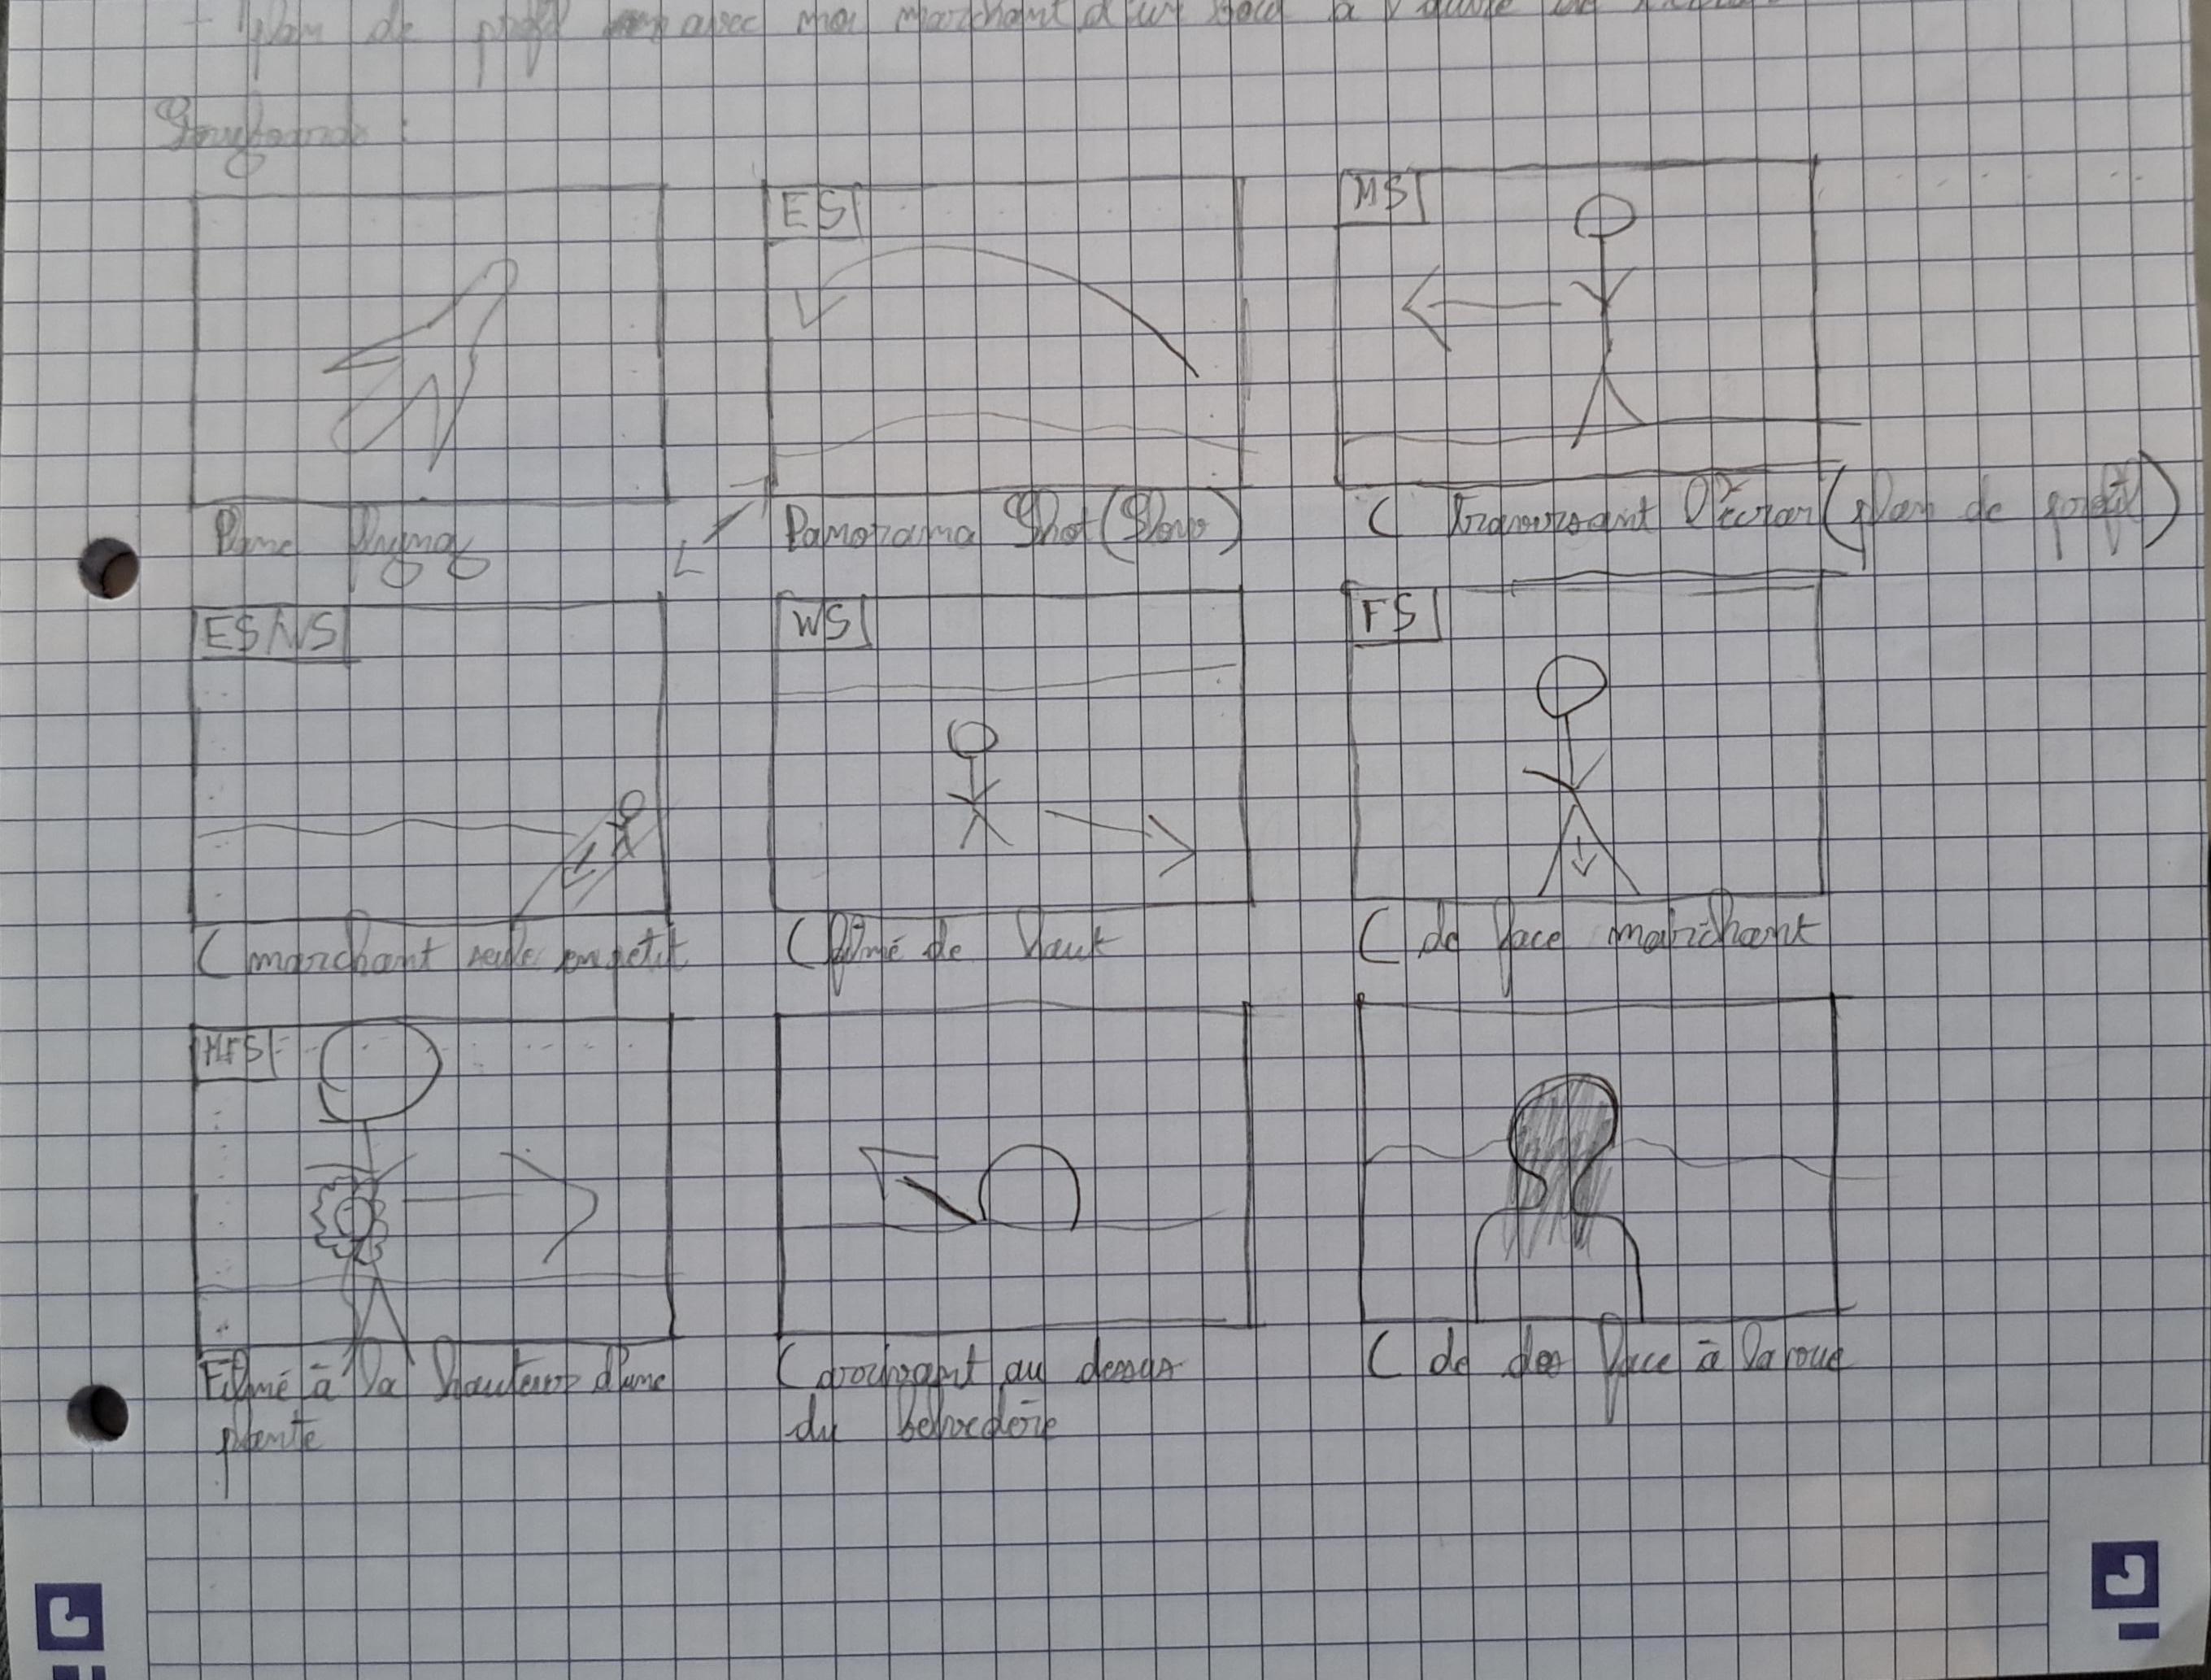 - plan de profil avec moi marchant d'un bout à l'autre de
Storyboard :
ES
MS
Plane flying
Panorama Shot (Slow)
C traversant l'écran (plan de profil)
ES/WS
WS
FS
C marchant seule en petit
C filmé de haut
C de face marchant
MFS
Filmé à la hauteur d'une
plante
C au dessus
du belvédère
C de dos face à la roue